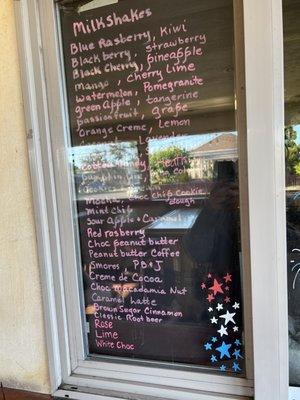 Milkshakes
Blue Rasberry, Kiwi
Blackberry, strawberry
Black Cherry, pineapple
Mango, Cherry Lime
Watermelon, Pomegranite
green Apple, tangerine
passionfruit, grape
Orange Creme, Lemon
Lavender
Cotton
Heath
Cookies
Mocha, Choc Chip Cookie
Mint Chip dough
Sour Apple Caramel
Red rasberry
Choc Peanut butter
Peanut butter Coffee
Smores, PB+J
Creme de Cocoa
Choc Macadamia Nut
Caramel Latte
Brown Sugar Cinnamon
Classic Root beer
Rose
Lime
White Choc